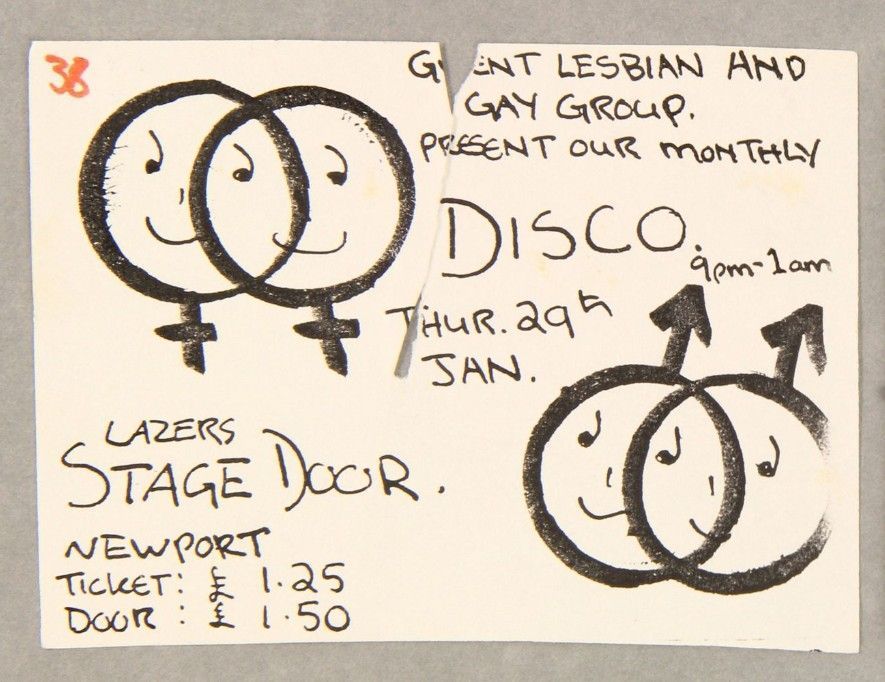 38
GWENT LESBIAN AND
GAY GROUP.
PRESENT OUR MONTHLY
DISCO.
9pm-1am
THUR. 29th
JAN.
LAZERS
STAGE DOOR.
NEWPORT
TICKET: £ 1.25
DOOR : £ 1.50